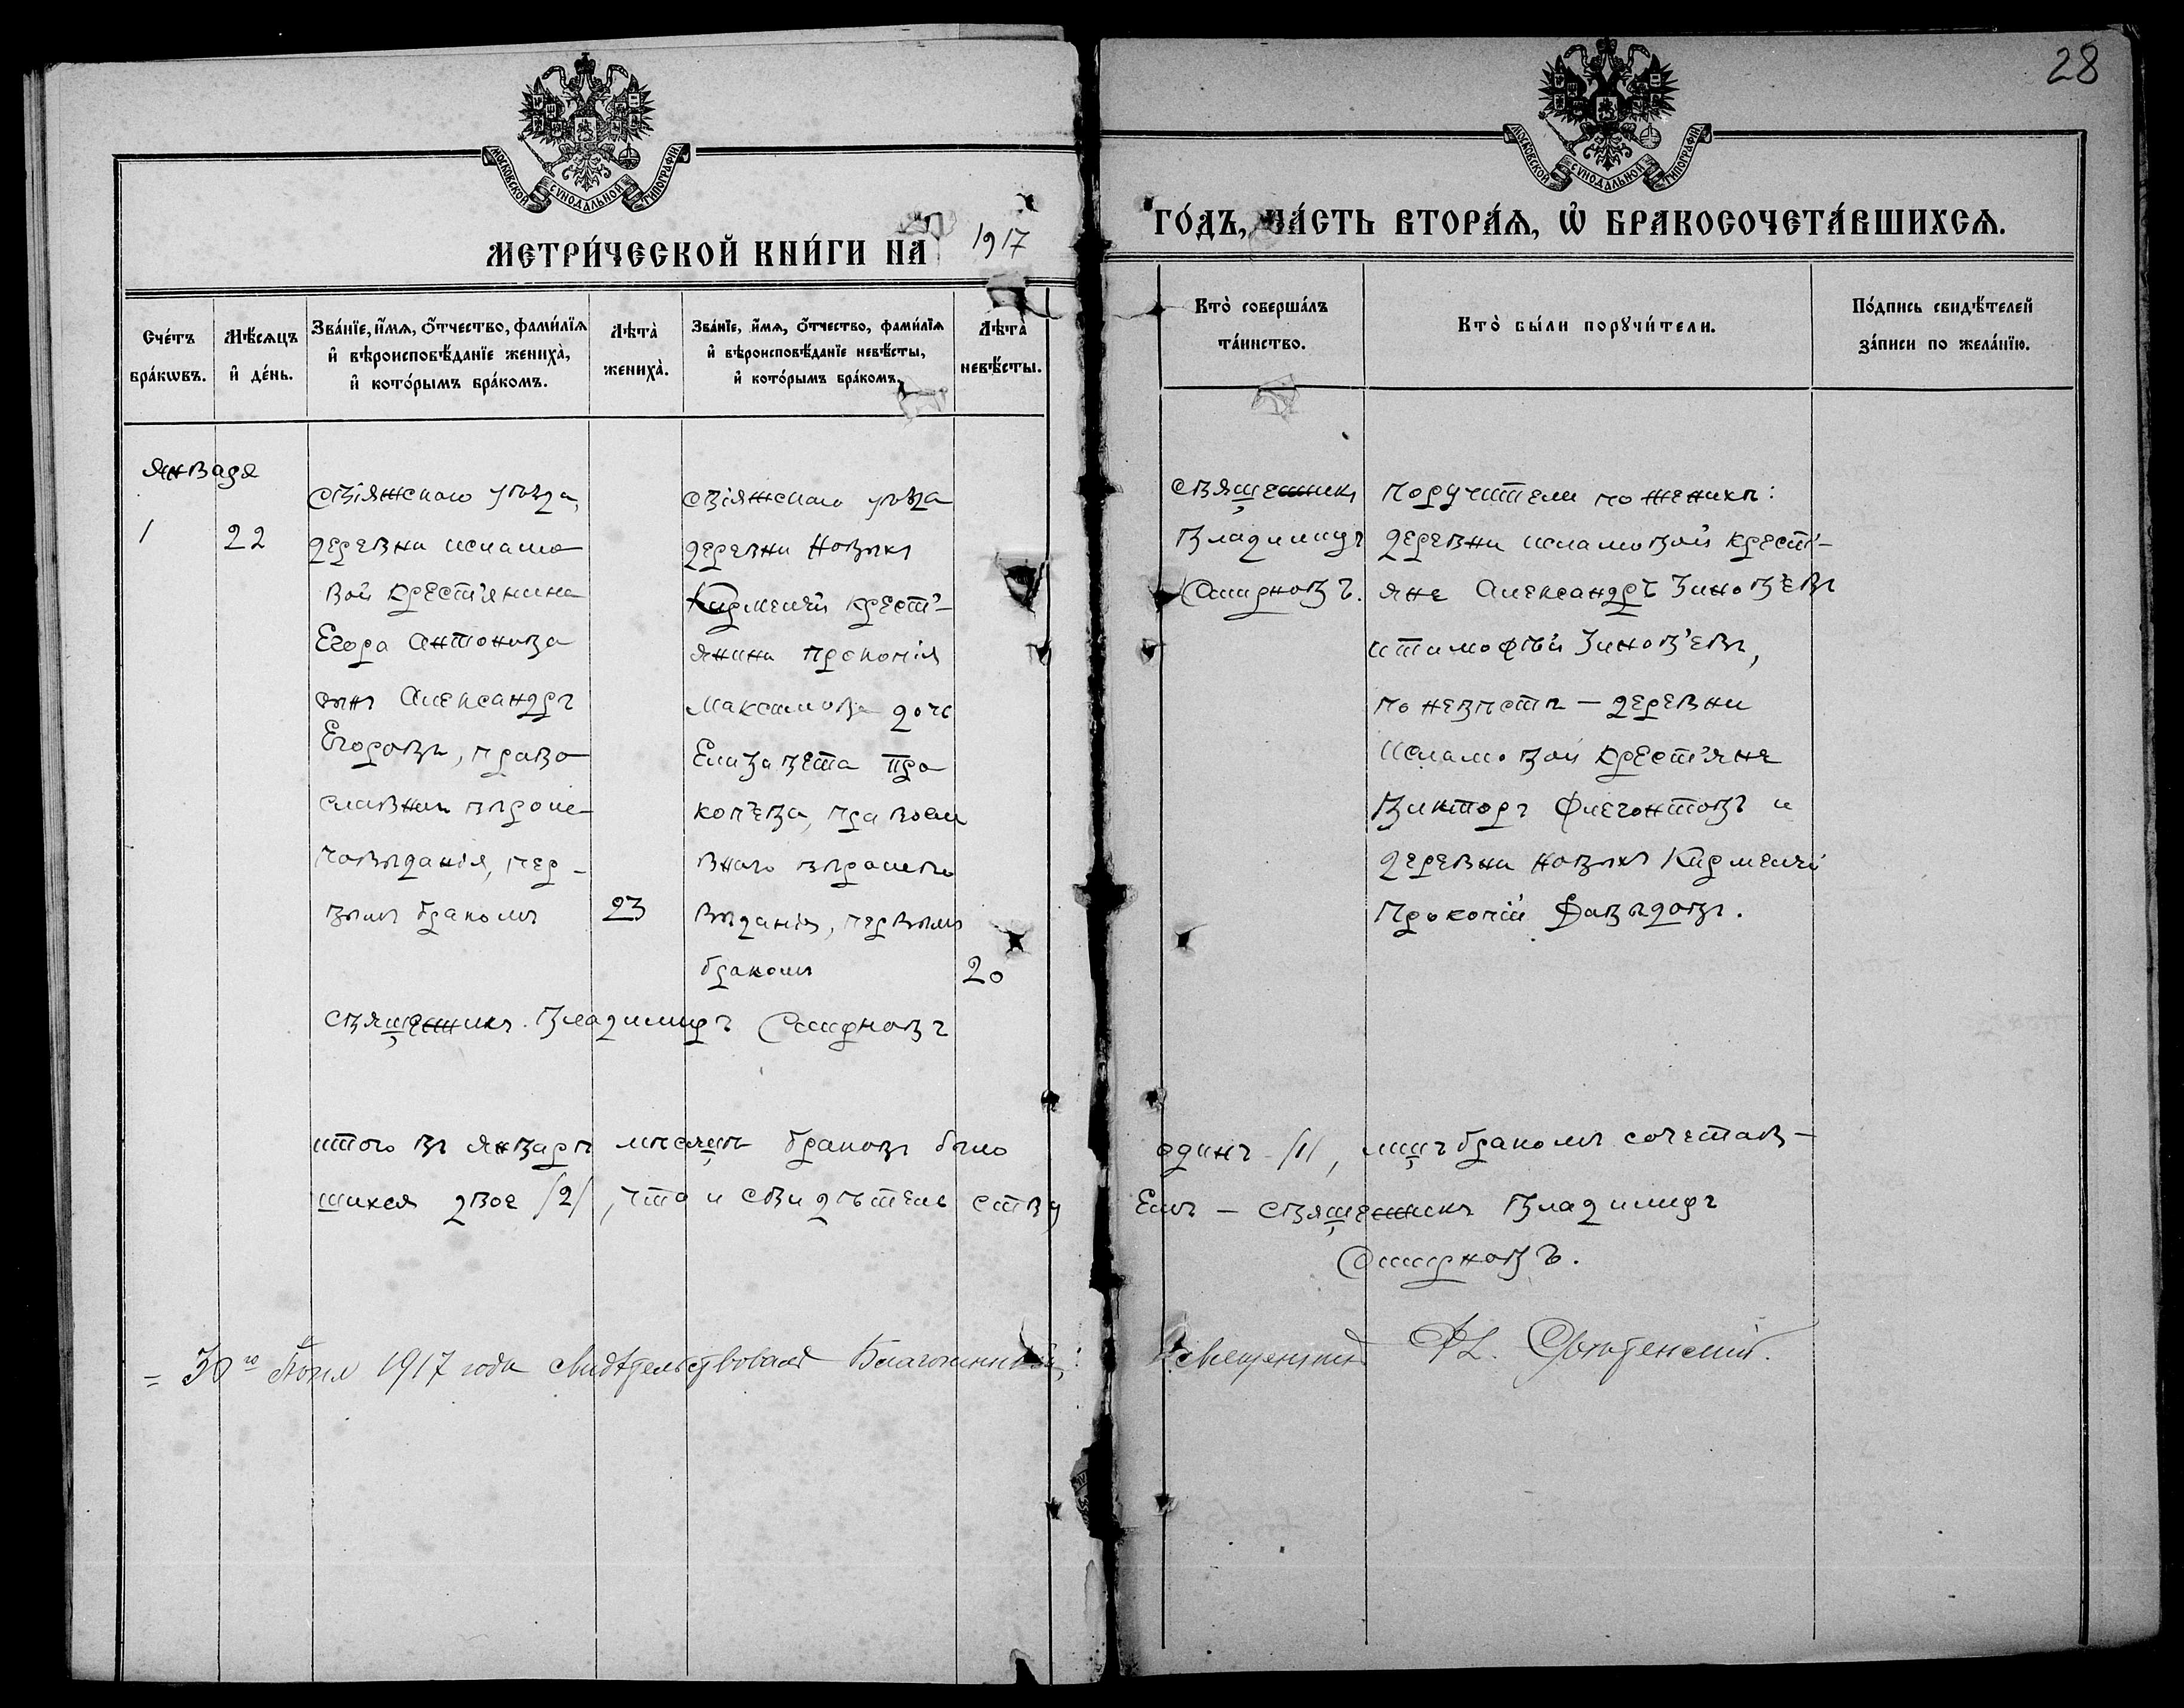 28
МОСКОВСКОЙ СѴНОДАЛЬНОЙ ТИПОГРАФІИ
МОСКОВСКОЙ СѴНОДАЛЬНОЙ ТИПОГРАФІИ
МЕТРИ́ЧЕСКОЙ КНИ́ГИ НА 1917
ГО́ДЪ, ЧА́СТЬ ВТОРА́Ѧ, Ѡ҆ БРАКОСОЧЕТА́ВШИХСѦ.
Сче́тъ
бра́кѡвъ.
Мѣ́сѧцъ
и҆ де́нь.
Зва́нїе, и҆́мѧ, ѻ҆́тчество, фами́лїѧ
и҆ вѣроисповѣ́данїе жениха̀,
и҆ кото́рымъ бра́комъ.
Лѣта̀
жениха̀.
Зва́нїе, и҆́мѧ, ѻ҆́тчество, фами́лїѧ
и҆ вѣроисповѣ́данїе невѣ́сты,
и҆ кото́рымъ бра́комъ.
Лѣта̀
невѣ́сты.
Кто̀ соверша́лъ
та́инство.
Кто̀ бы́ли порꙋчи́тели.
По́дпись свидѣ́телей
за́писи по жела́нїю.
Января
1
22
Свіяжскаго уѣзда,
деревни Исламо
вой крестьянина
Егора Антонова
сынъ Александръ
Егоровъ, право
славнаго вѣроис-
повѣданія, пер-
вымъ бракомъ
23
Свіяжскаго уѣзда
деревни Новыхъ
Кирмелей кресть-
янина Прокопія
Максимова дочь
Елизавета Про
копьева, правосла
внаго вѣроиспо
вѣданія, первымъ
бракомъ
20
Священникъ Владимиръ Смирновъ
Священникъ
Владимиръ
Смирновъ.
Поручители по женихѣ:
деревни Исламовой кресть-
яне Александръ Зиновьевъ
и Тимофѣй Зиновьевъ,
по невѣстѣ – деревни
Исламовой крестьяне
Викторъ Флегонтовъ и
деревни Новыхъ Кирмелей
Прокопій Давыдовъ.
Итого въ январѣ мѣсяцѣ браковъ было один /1/, лицъ бракомъ сочетав-
шихся двое /2/, что и свидѣтельствуемъ – священникъ Владимиръ
Смирновъ.
= 30го Іюня 1917 года свидѣтельствовалъ Благочинный, Священникъ